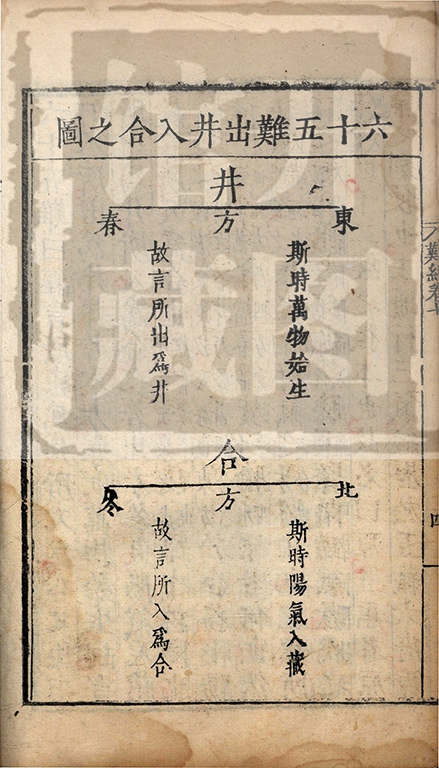 六十五難出井入合之圖
井
東方春
斯時萬物始生
故言所出爲井
合
北方冬
斯時陽氣入藏
故言所入爲合
難經卷
四
館藏图